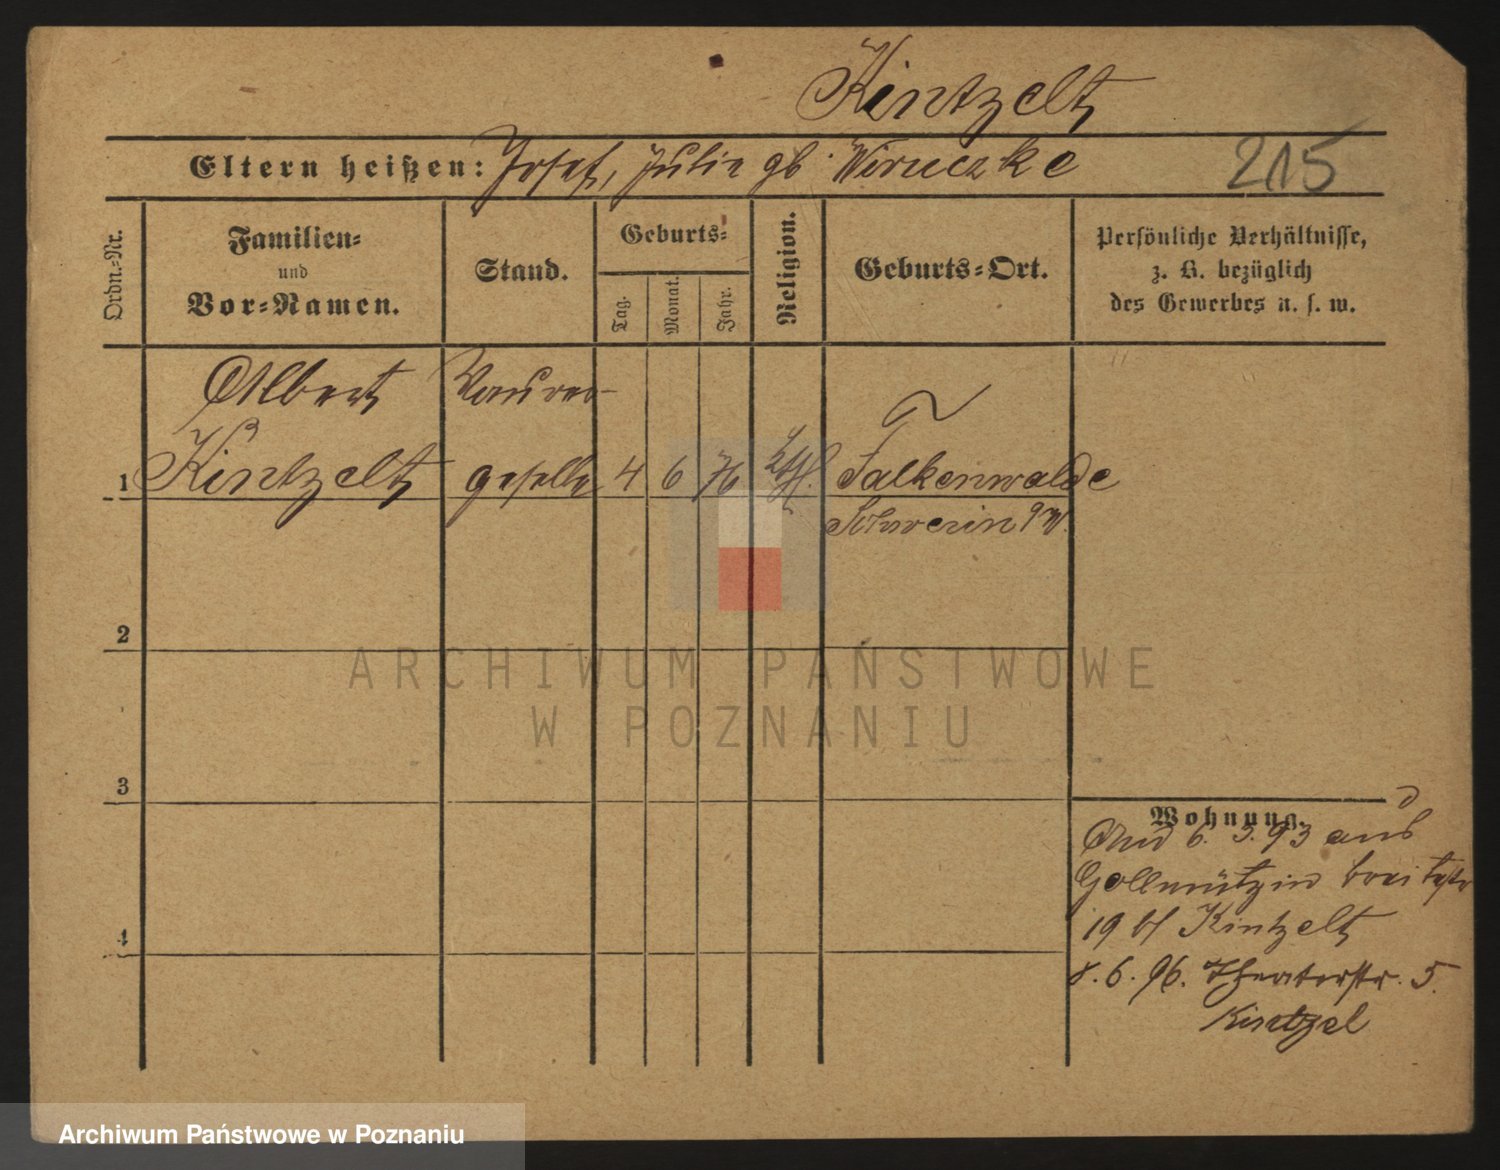 Kintzelt
Eltern heißen: Josef, Julie gb. Wiruczke
215
Ordn.-Nr.
Familien-
und
Vor-Namen.
Stand.
Geburts-
Tag.
Monat.
Jahr.
Religion.
Geburts-Ort.
Persönliche Verhältnisse,
z. B. bezüglich
des Gewerbes u. s. w.
Albert
1 Kintzelt geselle 4 6 76 kth. Falkenwalde
Schwerin
2
3
4
Wohnung.
6. 3. 93 aus
19 bf Kintzelt
8. 6. 96. Theaterstr. 5.
Kintzel
ARCHIWUM PAŃSTWOWE
W POZNANIU
Archiwum Państwowe w Poznaniu